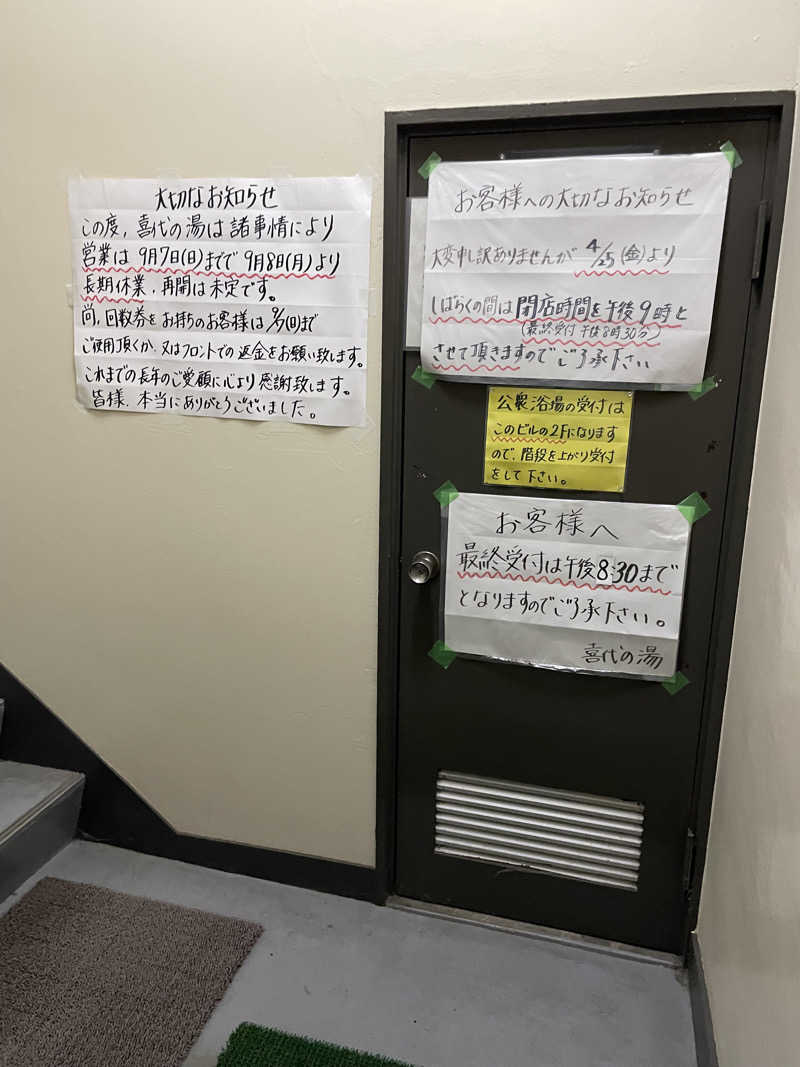 大切なお知らせ
この度、喜代の湯は諸事情により
営業は9月7日(日)までで9月8日(月)より
長期休業、再開は未定です。
尚、回数券をお持ちのお客様は9/7(日)まで
ご使用頂くか、又はフロントでの返金をお願い致します。
これまでの長年のご愛顧に心より感謝致します。
皆様、本当にありがとうございました。
お客様への大切なお知らせ
大変申し訳ありませんが 4/25(金)より
しばらくの間は閉店時間を午後9時と
(最終受付 午後8時30分)
させて頂きますのでご了承下さい
公衆浴場の受付は
このビルの2Fになります
ので、階段を上がり受付
をして下さい。
お客様へ
最終受付は午後8:30まで
となりますのでご了承下さい。
喜代の湯